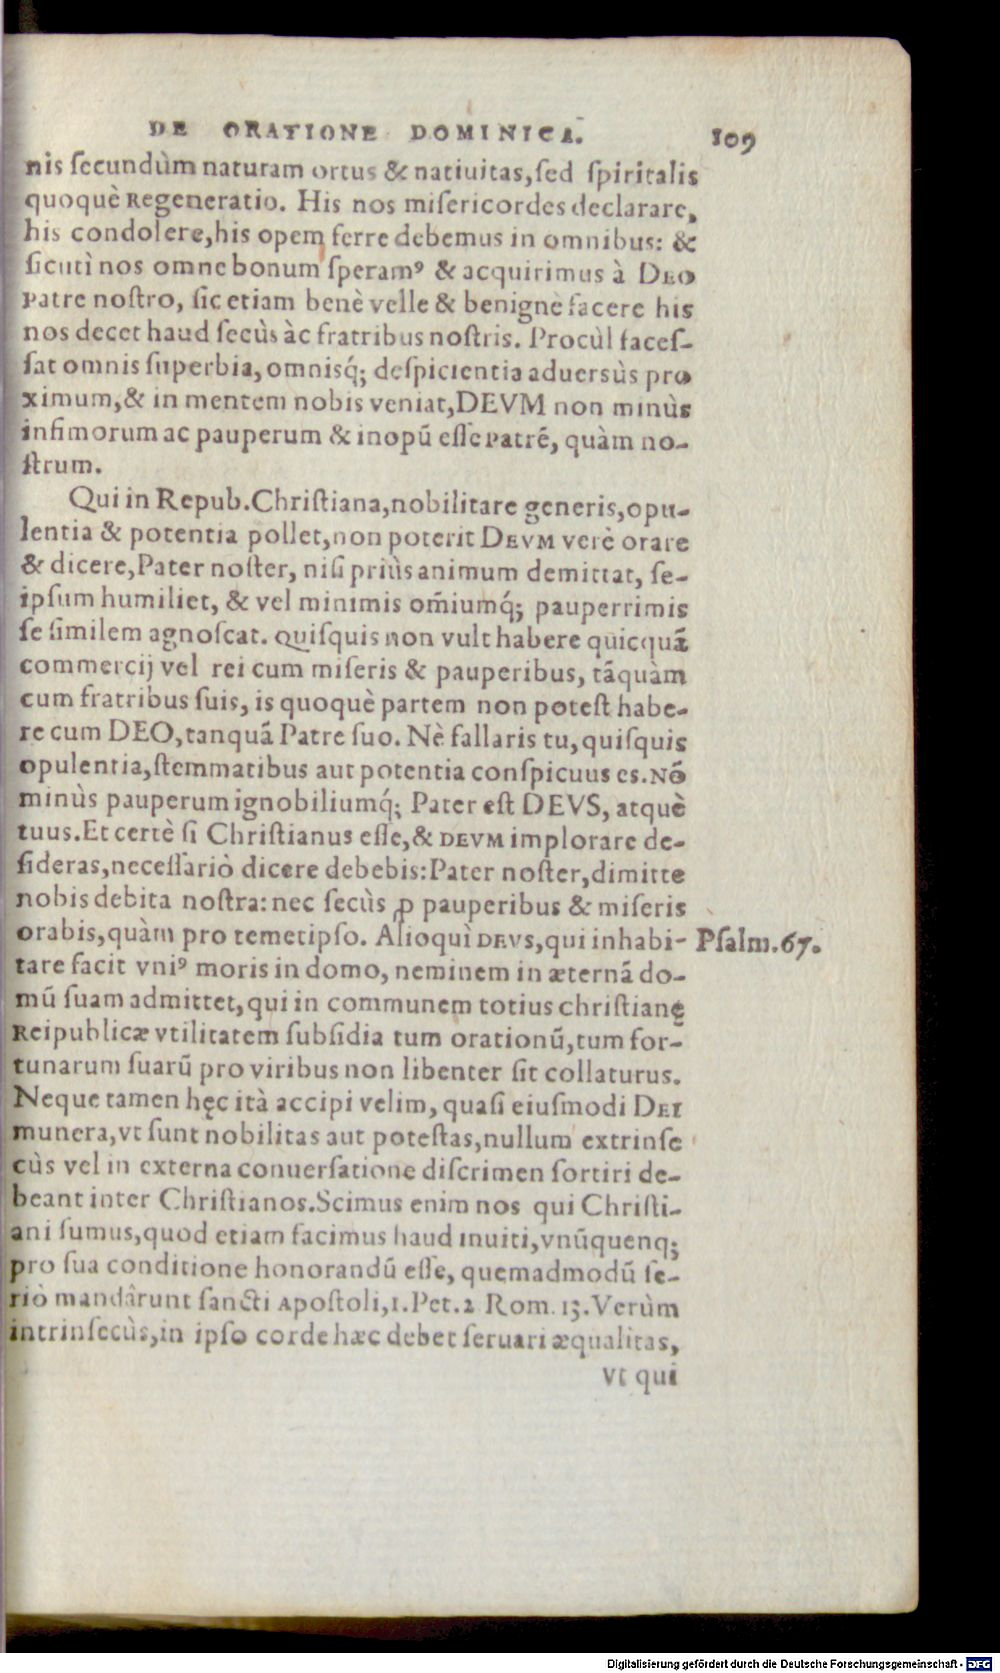 DE ORATIONE DOMINICA. 109
nis ſecundùm naturam ortus & natiuitas, ſed ſpiritalis
quoquè Regeneratio. His nos miſericordes declarare,
his condolere, his opem ferre debemus in omnibus: &
ſicutì nos omne bonum ſperamꝰ & acquirimus à DEO
Patre noſtro, ſic etiam benè velle & benignè facere his
nos decet haud ſecùs àc fratribus noſtris. Procùl faceſ-
ſat omnis ſuperbia, omnisq́; deſpicientia aduersùs pro
ximum, & in mentem nobis veniat, DEVM non minùs
infimorum ac pauperum & inopũ eſſe Patrẽ, quàm no-
ſtrum.
Qui in Repub. Chriſtiana, nobilitate generis, opu-
lentia & potentia pollet, non poterit DEVM verè orare
& dicere, Pater noſter, niſi priùs animum demittat, ſe-
ipſum humiliet, & vel minimis om̃iumq́; pauperrimis
ſe ſimilem agnoſcat. Quiſquis non vult habere quicquã
commercij vel rei cum miſeris & pauperibus, tãquàm
cum fratribus ſuis, is quoquè partem non poteſt habe-
re cum DEO, tanquã Patre ſuo. Nè fallaris tu, quiſquis
opulentia, ſtemmatibus aut potentia conſpicuus es. Nõ
minùs pauperum ignobiliumq́; Pater eſt DEVS, atquè
tuus. Et certè ſi Chriſtianus eſſe, & DEVM implorare de-
ſideras, neceſſariò dicere debebis: Pater noſter, dimitte
nobis debita noſtra: nec ſecùs ꝓ pauperibus & miſeris
orabis, quàm pro temetipſo. Alioquì DEVS, qui inhabi- Pſalm. 67.
tare facit vniꝰ moris in domo, neminem in æternã do-
mũ ſuam admittet, qui in communem totius chriſtianę
Reipublicæ vtilitatem ſubſidia tum orationũ, tum for-
tunarum ſuarũ pro viribus non libenter ſit collaturus.
Neque tamen hęc ità accipi velim, quaſi eiuſmodi DEI
munera, vt ſunt nobilitas aut poteſtas, nullum extrinſe
cùs vel in externa conuerſatione diſcrimen ſortiri de-
beant inter Chriſtianos. Scimus enim nos qui Chriſti-
ani ſumus, quod etiam facimus haud inuiti, vnũquenq;
pro ſua conditione honorandũ eſſe, quemadmodũ ſe-
riò mandârunt ſancti Apoſtoli, 1. Pet. 2 Rom. 13. Verùm
intrinſecùs, in ipſo corde hæc debet ſeruari æqualitas,
vt qui
Digitalisierung gefördert durch die Deutsche Forschungsgemeinschaft - DFG